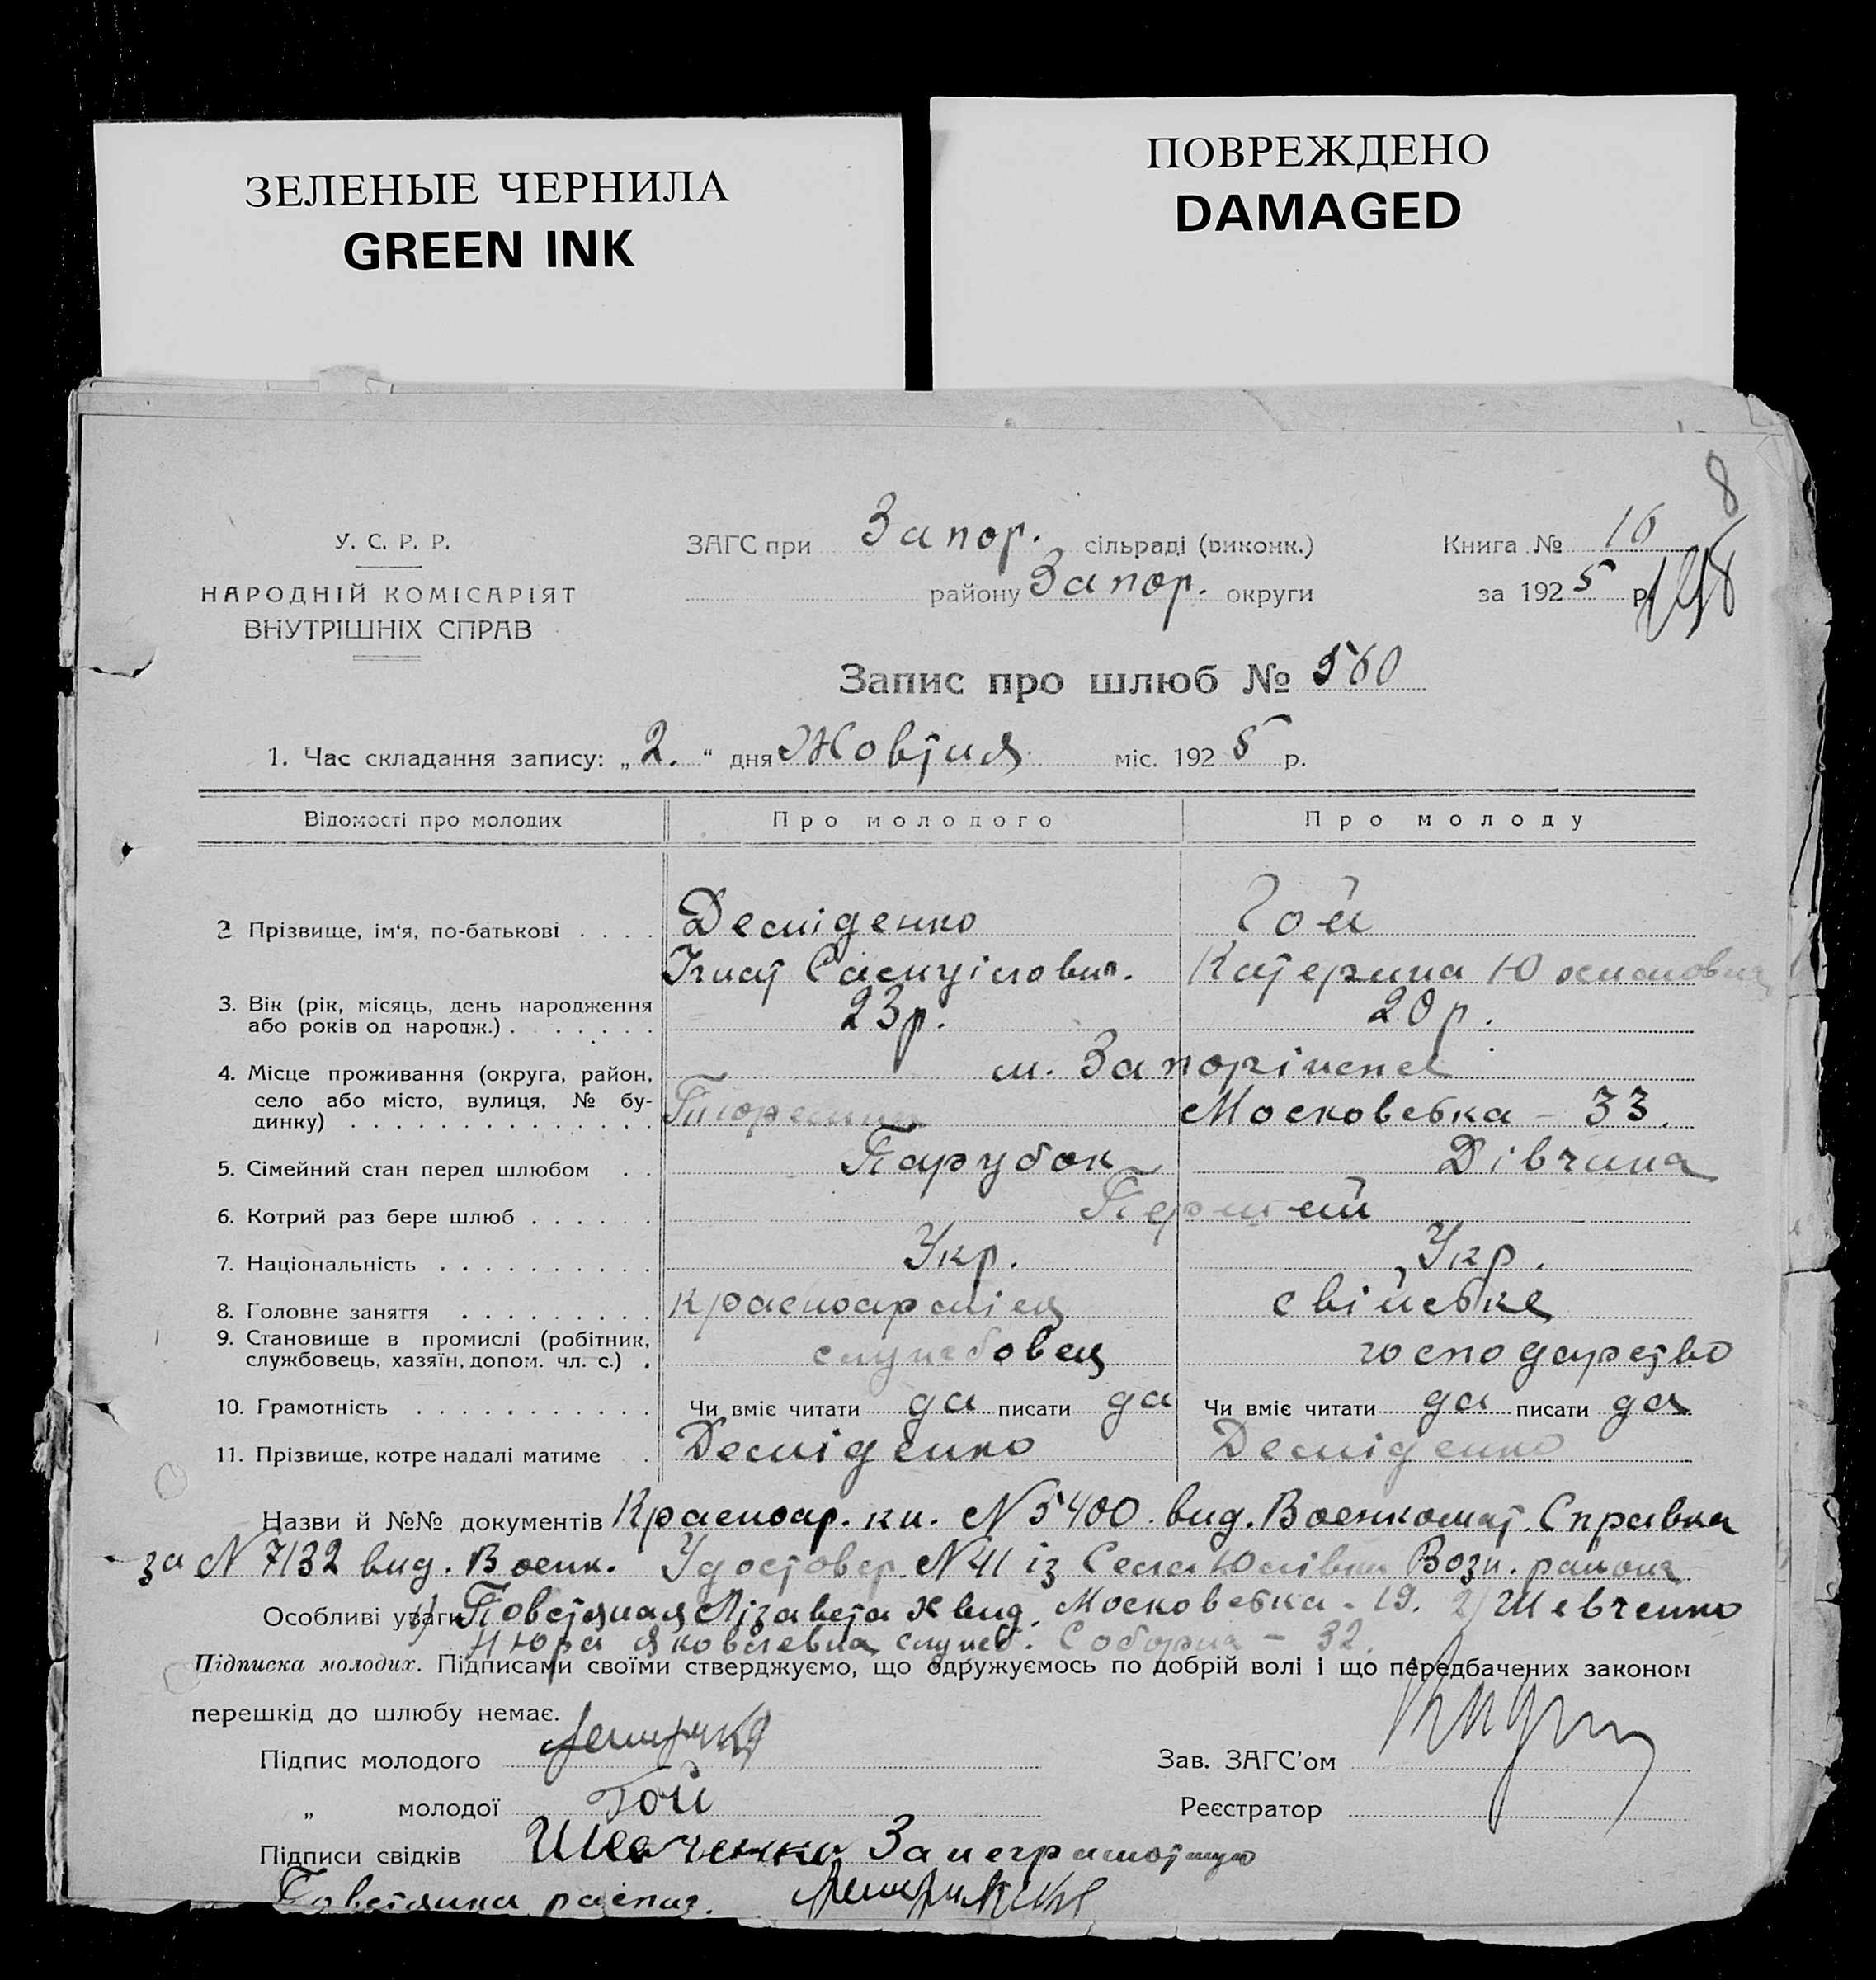 ЗЕЛЕНЫЕ ЧЕРНИЛА
GREEN INK
ПОВРЕЖДЕНО
DAMAGED
8
У. С. Р. Р.
НАРОДНІЙ КОМІСАРІЯТ
ВНУТРІШНІХ СПРАВ
ЗАГС при Запор. сільраді (виконк.)
району Запор. округи
Книга № 16
за 1925 р.
Запис про шлюб № 560
1. Час складання запису: „2.“ дня Жовтня міс. 1925 р.
Відомості про молодих Про молодого Про молоду
2 Прізвище, ім'я, по-батькові . . . . Деміденко Гой
Ігнат Самуілович. Катерина
3. Вік (рік, місяць, день народження
або років од народж.) . . . . . . . 23 р. 20 р.
4. Місце проживання (округа, район,
село або місто, вулиця, № бу-
динку) . . . . . . . . . . . . . . .
м. Запоріжже
Московська - 33.
5. Сімейний стан перед шлюбом . . Парубок Дівчина
6. Котрий раз бере шлюб . . . . . . Перший
7. Національність . . . . . . . . . . Укр. Укр.
8. Головне заняття . . . . . . . . . Красноармієц свійське
9. Становище в промислі (робітник,
службовець, хазяїн, допом. чл. с.) . службовец господарство
10. Грамотність . . . . . . . . . . . Чи вміє читати да писати да Чи вміє читати да писати да
11. Прізвище, котре надалі матиме . Деміденко Деміденко
Назви й №№ документів Красноар. кн. N 5400 вид. Военкомат. Справка
за N 7132 вид. Военк. Удостовер N 41 із Села Возн. района
Особливі уваги 1) Повстяная Лізавета Московська - 19. 2) Шевченко
Нюра Яковлевна служб. Соборна - 32.
Підписка молодих. Підписами своїми стверджуємо, що одружуємось по добрій волі і що передбачених законом
перешкід до шлюбу немає.
Підпис молодого
Зав. ЗАГС'ом
„ молодої Гой
Реєстратор
Підписи свідків Шевченко За неграмотную
Повстяна распис.